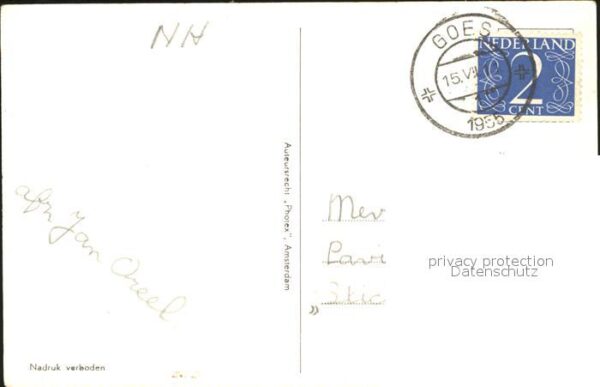 NH
GOES
NEDERLAND
15.VII
2
CENT
1955
Auteursrecht „Photex”, Amsterdam
afz Jan
Mev
Pavi
privacy protection
Datenschutz
Stic
Nadruk verboden